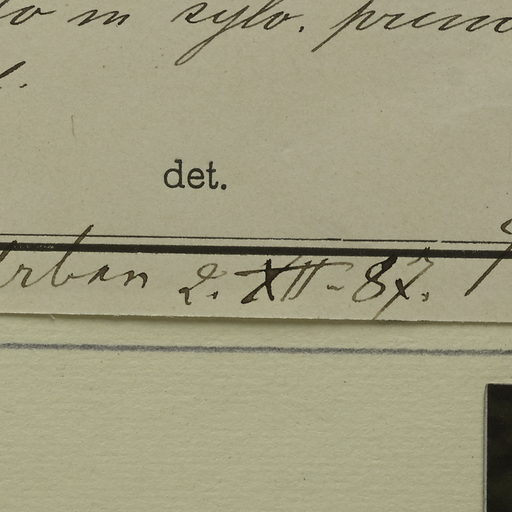 in sylv. prim
det.
Urban 2. XII. 87.